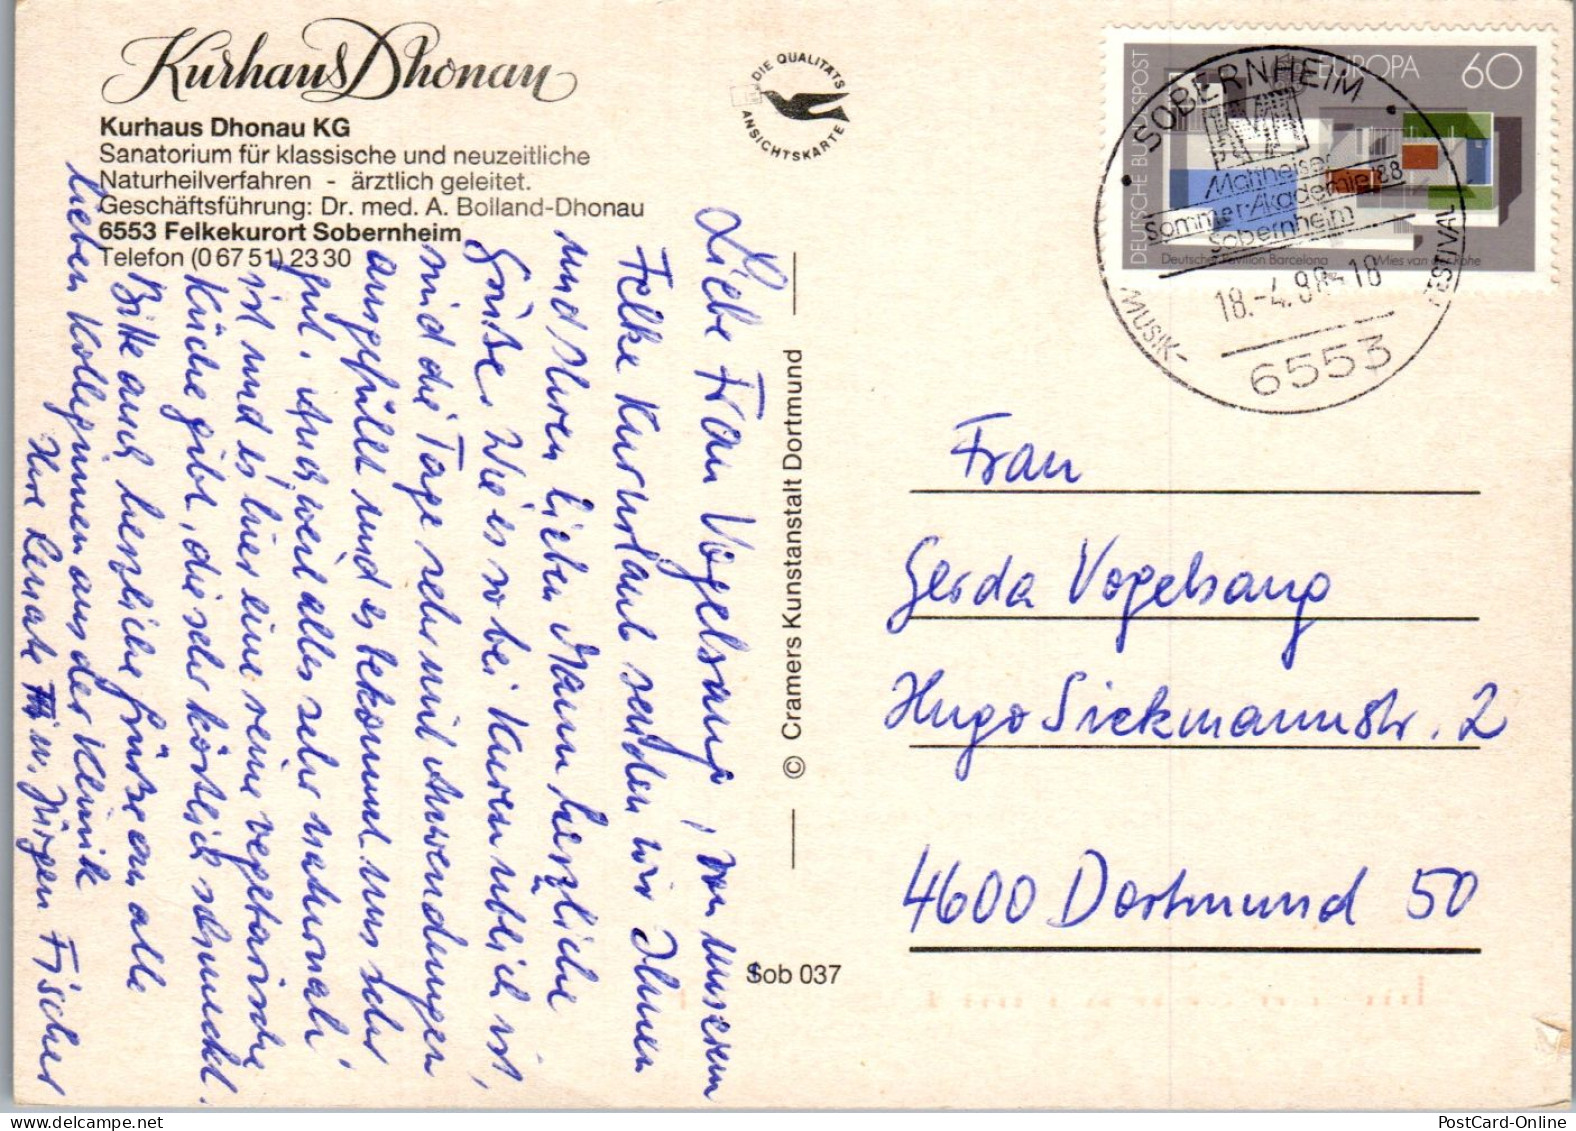 Kurhaus Dhonau
Kurhaus Dhonau KG
Sanatorium für klassische und neuzeitliche
Naturheilverfahren - ärztlich geleitet.
Geschäftsführung: Dr. med. A. Bolland-Dhonau
6553 Felkekurort Sobernheim
Telefon (0 67 51) 23 30
DIE QUALITÄTS
ANSICHTSKARTE
DEUTSCHE BUNDESPOST
EUROPA 60
Deutscher Pavillon Barcelona
Mies van der Rohe
SOBERNHEIM
Mattheiser
Sommer-Akademie '88
Sobernheim
18.-4.98-18
MUSIK-
FESTIVAL
6553
Liebe Frau Vogelsang, von unserem
Felke Kururlaub senden wir Ihnen
und Ihren lieben Mann herzliche
Grüße. Wie es so bei Kuren üblich ist,
sind die Tage sehr mit Anwendungen
ausgefüllt und es bekommt uns sehr
gut. Auch weil alles sehr naturnah
ist und es hier eine reine vegetarische
Küche gibt, die sehr köstlich schmeckt.
Bitte auch herzliche Grüße an alle
lieben Kolleginnen aus der Klinik
Ihre Renate u. Jürgen Fischer
© Cramers Kunstanstalt Dortmund
Sob 037
Frau
Gerda Vogelsang
Hugo Siekmannstr. 2
4600 Dortmund 50
PostCard-Online